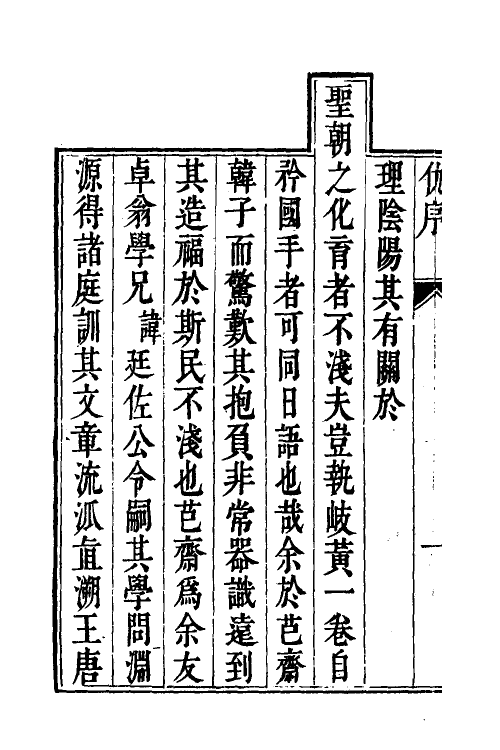 理陰陽其有關於
聖朝之化育者不淺夫豈執岐黃一卷自
矜國手者可同日語也哉余於芑齋
韓子而驚歎其抱負非常器識遠到
其造福於斯民不淺也芑齋爲余友
卓翁學兄諱廷佐公令嗣其學問淵
源得諸庭訓其文章流派直溯王唐